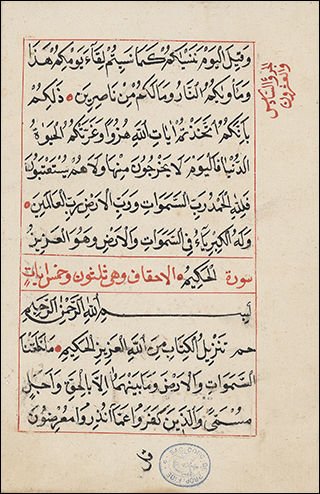 وَقِيلَ الْيَوْمَ نَنْسٰيكُمْ كَمَا نَسِيتُمْ لِقَاءَ يَوْمِكُمْ هٰذَا
وَمَأْوٰيكُمُ النَّارُ وَمَالَكُمْ مِنْ نَاصِرِينَ ذٰلِكُمْ
بِأَنَّكُمُ اتَّخَذْتُمْ اٰيَاتِ اللهِ هُزُوًا وَغَرَّتْكُمُ الْحَيٰوةُ
الدُّنْيَا فَالْيَوْمَ لَا يُخْرَجُونَ مِنْهَا وَلَا هُمْ يُسْتَعْتَبُونَ
فَلِلّٰهِ الْحَمْدُ رَبِّ السَّمٰوَاتِ وَرَبِّ الْاَرْضِ رَبِّ الْعَالَمِينَ
وَلَهُ الْكِبْرِيَاءُ فِي السَّمٰوَاتِ وَالْاَرْضِ وَهُوَ الْعَزِيزُ
سورة الْحَكِيمُ الاحقاف وهى ثلثون وخمس ايات
بِسْمِ اللهِ الرَّحْمٰنِ الرَّحِيمِ
حم تَنْزِيلُ الْكِتَابِ مِنَ اللهِ الْعَزِيزِ الْحَكِيمِ مَاخَلَقْنَا
السَّمٰوَاتِ وَالْاَرْضَ وَمَا بَيْنَهُمَا اِلَّا بِالْحَقِّ وَاَجَلٍ
مُسَمًّى وَالَّذِينَ كَفَرُوا عَمَّا اُنْذِرُوا مُعْرِضُونَ
الجزو السادس
والعشرون